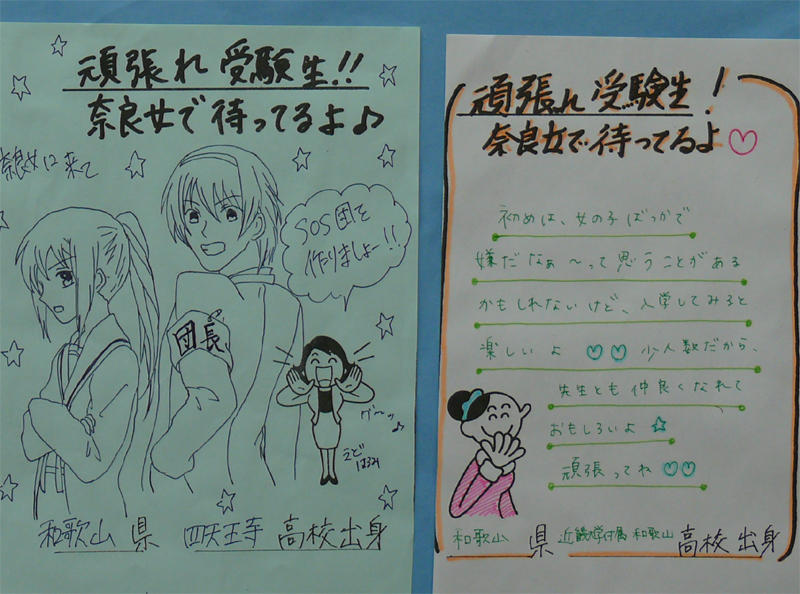 頑張れ 受験生!!
奈良女で待ってるよ♪
奈良女に来て
SOS団を
作りましょー!!
団長
えど
はるみ
和歌山 県 四天王寺 高校出身
頑張れ 受験生!
奈良女で待ってるよ♡
初めは、女の子ばっかで
嫌だなぁ〜って思うことがある
かもしれないけど、入学してみると
楽しいよ ♡♡ 少人数だから、
先生とも仲良くなれて
おもしろいよ ☆
頑張ってね ♡♡
和歌山 県 近畿大学付属 和歌山 高校出身